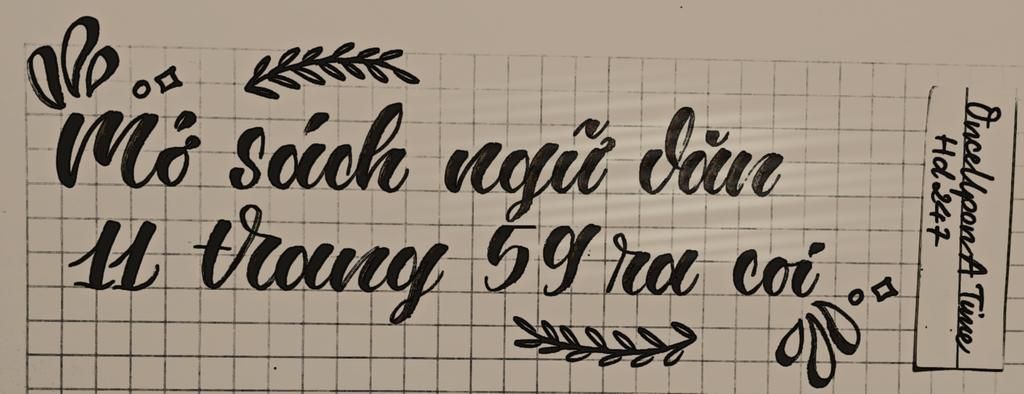 Mở sách ngữ văn
11 trang 59 ra coi
OnceUponA Time
Hd 247